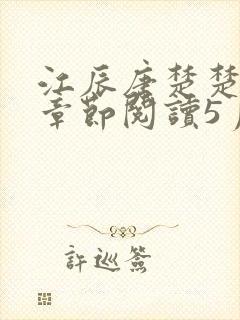 江辰唐楚楚
章節閱讀5
許巡簽